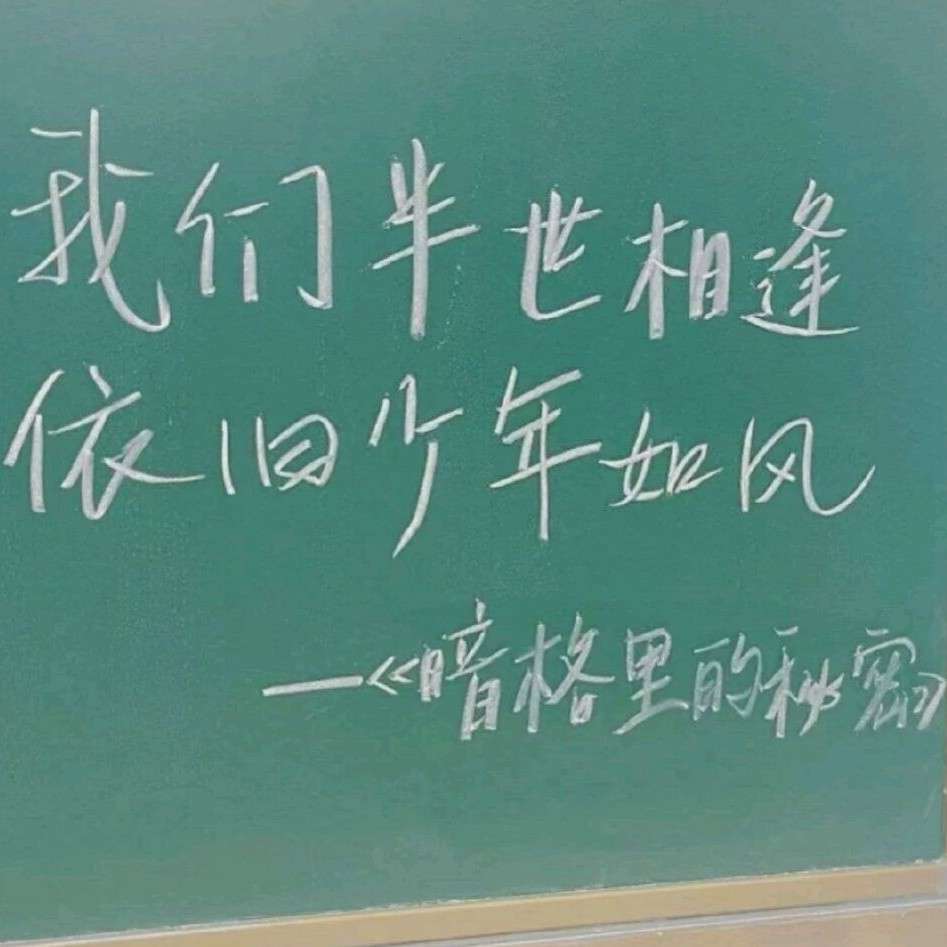 我们半世相逢
依旧少年如风
—《暗格里的秘密》